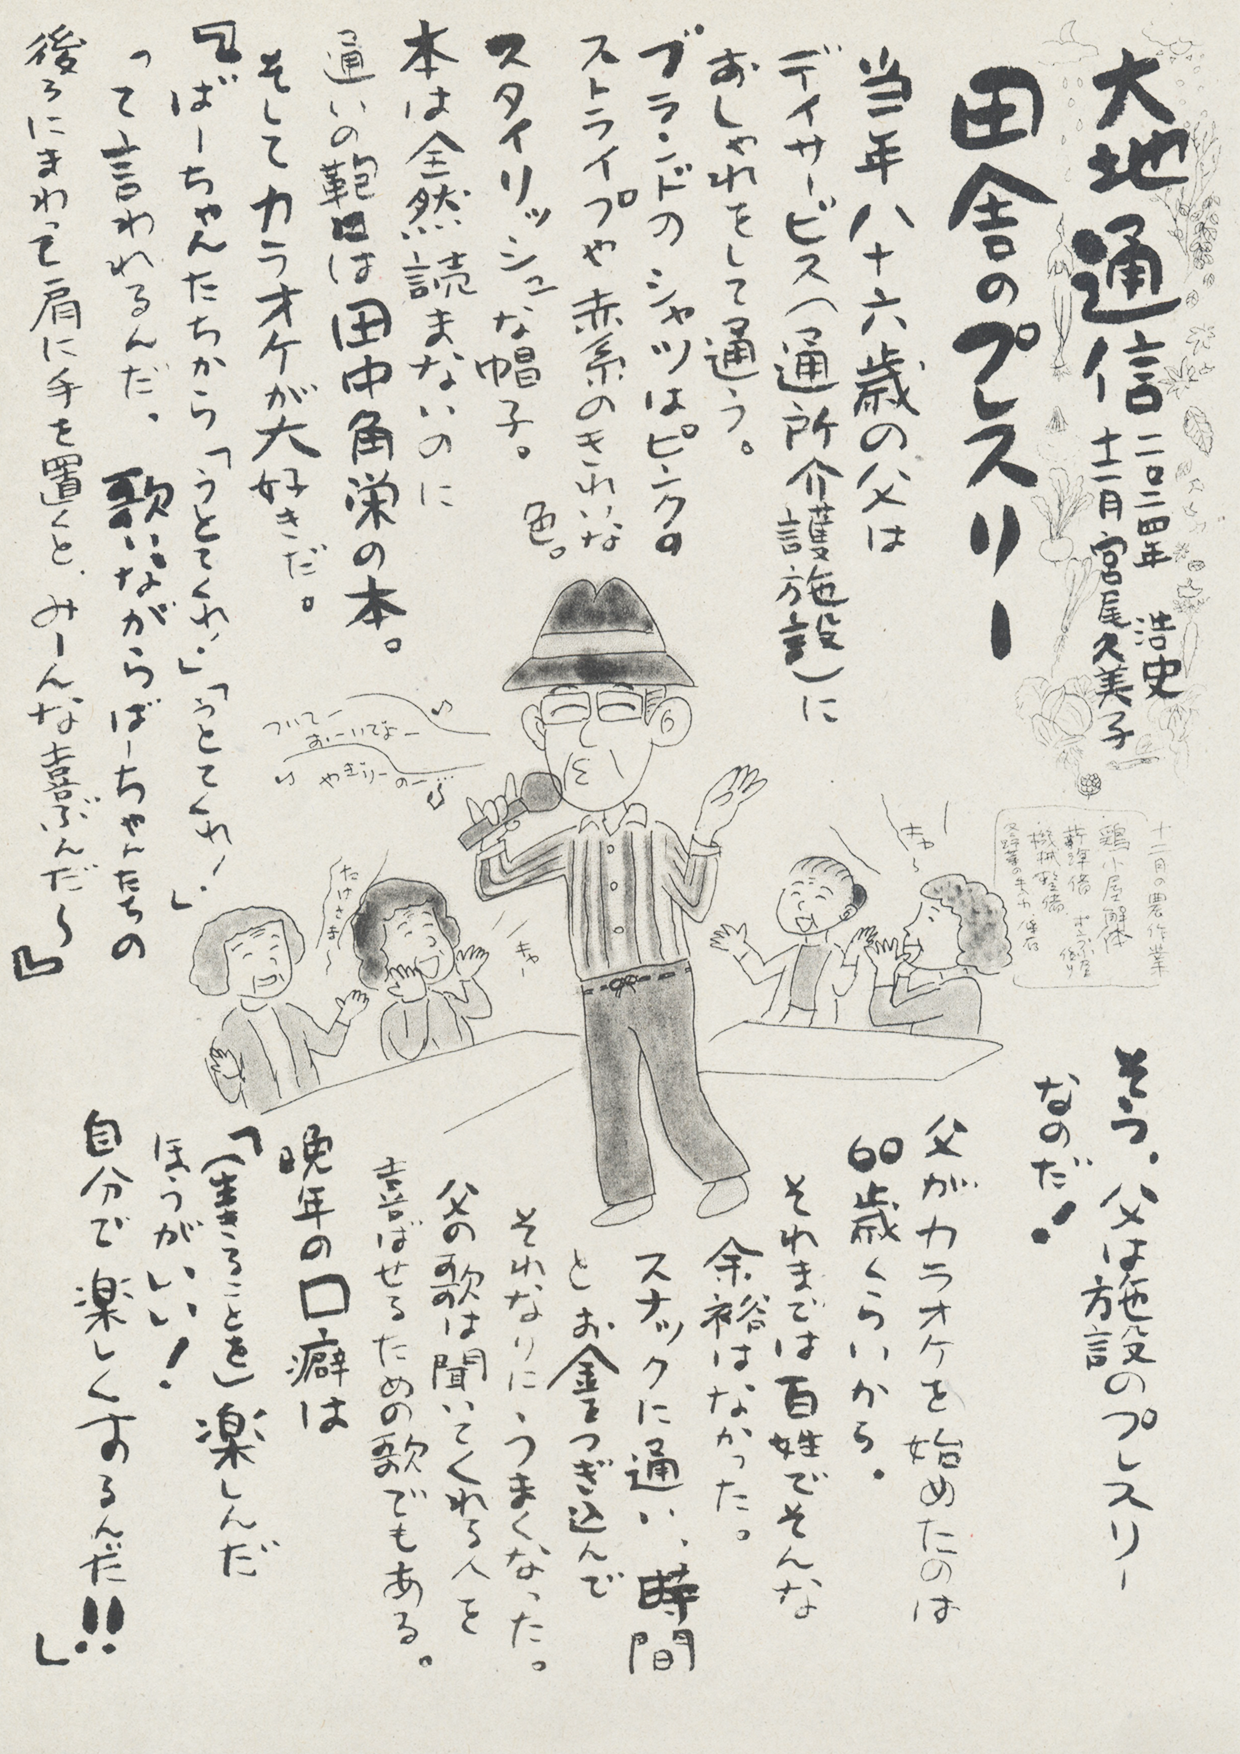 大地通信
二〇二四年
十二月
宮尾
浩史
久美子
田舎のプレスリー
当年八十六歳の父は
デイサービス(通所介護施設)に
おしゃれをして通う。
ブランドのシャツはピンクの
ストライプや赤系のきれいな
色。
スタイリッシュな帽子。
本は全然読まないのに
通いの鞄には田中角栄の本。
そしてカラオケが大好きだ。
『ばーちゃんたちから「うとてくれ!」「うとてくれ!」
って言われるんだ。歌いながらばーちゃんたちの
後ろにまわって肩に手を置くと、みーんな喜ぶんだ〜』
ついてー
おーいでよー
やぎりーのー
たけさま〜
キャー
キャ〜
十二月の農作業
鶏小屋解体
薪準備
機械整備
そう、父は施設のプレスリー
なのだ!
父がカラオケを始めたのは
60歳くらいから。
それまでは百姓でそんな
余裕はなかった。
スナックに通い、時間
とお金をつぎ込んで
それなりにうまくなった。
父の歌は聞いてくれる人を
喜ばせるための歌でもある。
晩年の口癖は
「(生きることを)楽しんだ
ほうがいい!
自分で楽しくするんだ!!」